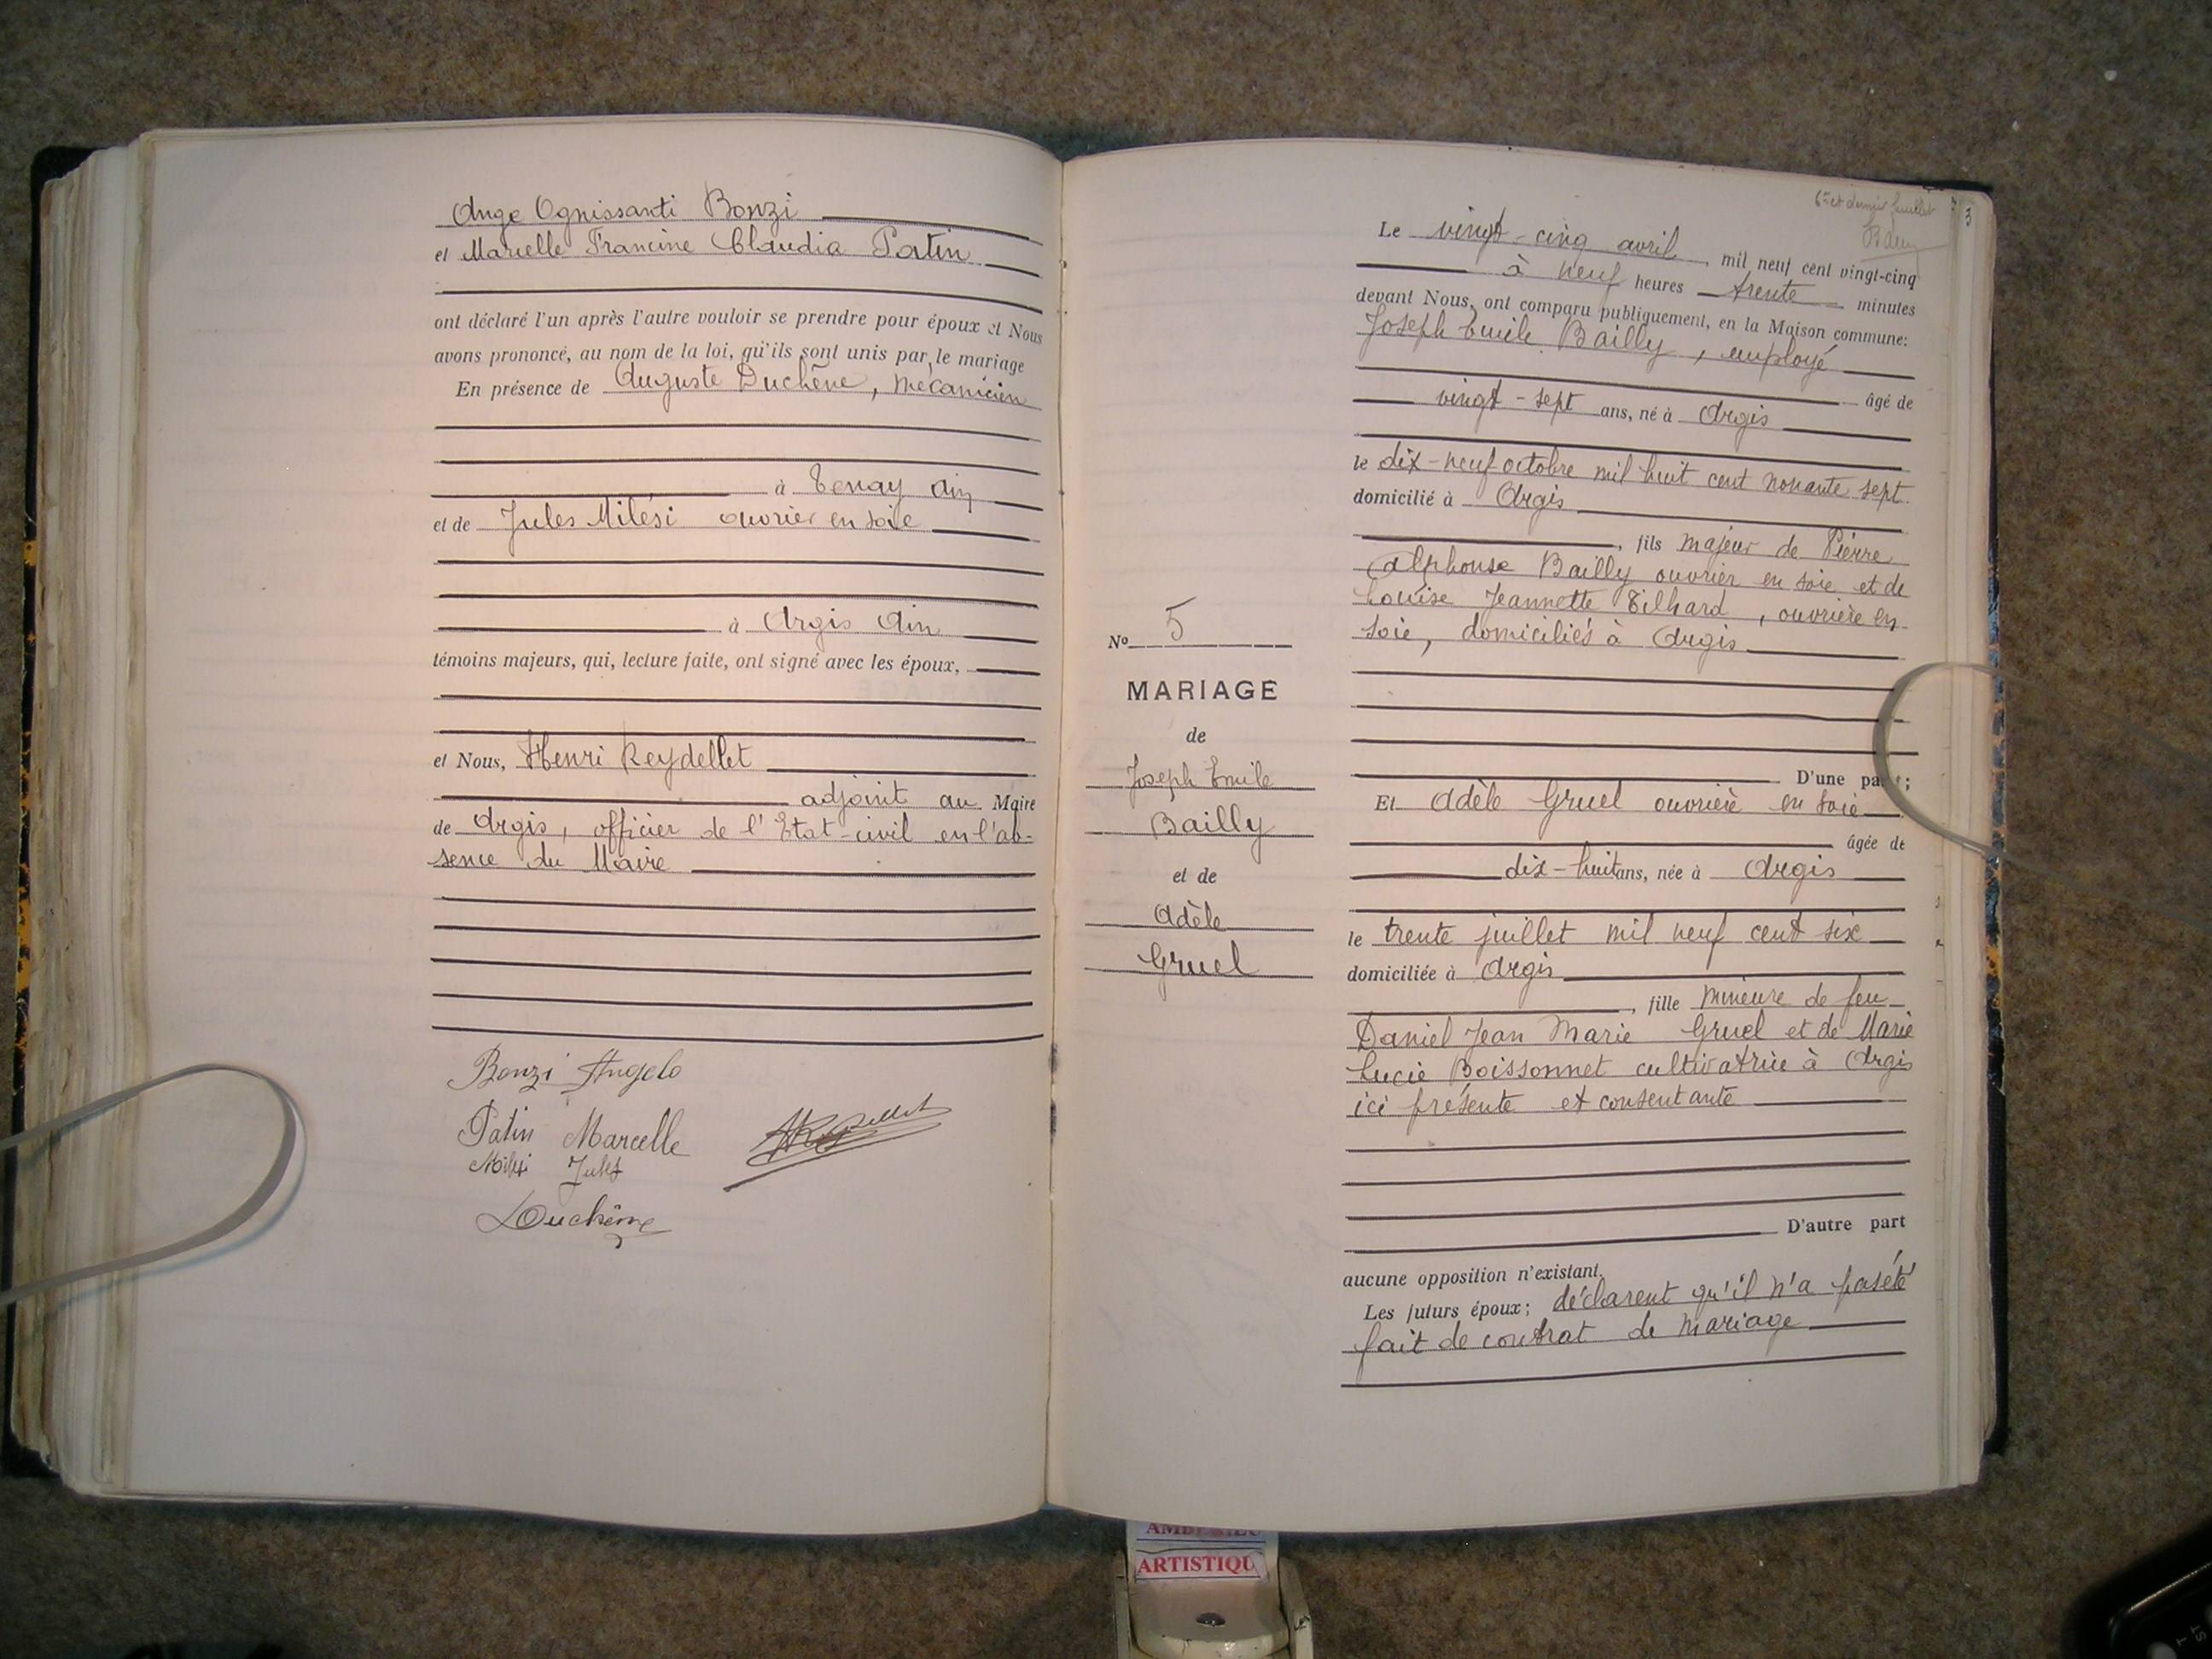 Ange Ognissanti Bonzi
et Marcelle Francine Claudia Patin
ont déclaré l'un après l'autre vouloir se prendre pour époux et Nous
avons prononcé, au nom de la loi, qu'ils sont unis par le mariage
En présence de Auguste Duchêne, mécanicien
à Tenay Ain
et de Jules Milési ouvrier en soie
à Argis Ain
témoins majeurs, qui, lecture faite, ont signé avec les époux,
et Nous, Henri Reydellet
adjoint au Maire
de Argis, officier de l'Etat-civil en l'ab-
sence du Maire
Bonzi Angelo
Patin Marcelle
Milesi Jules
Duchêne
N° 5
MARIAGE
de
Joseph Emile
Bailly
et de
Adèle
Gruel
6e et dernier feuillet
3
Le vingt-cinq avril, mil neuf cent vingt-cinq
à neuf heures trente minutes
devant Nous, ont comparu publiquement, en la Maison commune:
Joseph Emile Bailly, employé
âgé de
vingt-sept ans, né à Argis
le dix-neuf octobre mil huit cent nonante sept
domicilié à Argis
, fils majeur de Pierre
Alphonse Bailly ouvrier en soie et de
Louise Jeannette Tilhard, ouvrière en
soie, domiciliés à Argis
D'une part;
Et Adèle Gruel ouvrière en soie
âgée de
dix-huit ans, née à Argis
le trente juillet mil neuf cent six
domiciliée à Argis
, fille mineure de feu
Daniel Jean Marie Gruel et de Marie
Lucie Boissonnet cultivatrice à Argis
ici présente et consentante
D'autre part
aucune opposition n'existant.
Les futurs époux; déclarent qu'il n'a pas été
fait de contrat de mariage
ARTISTIQU